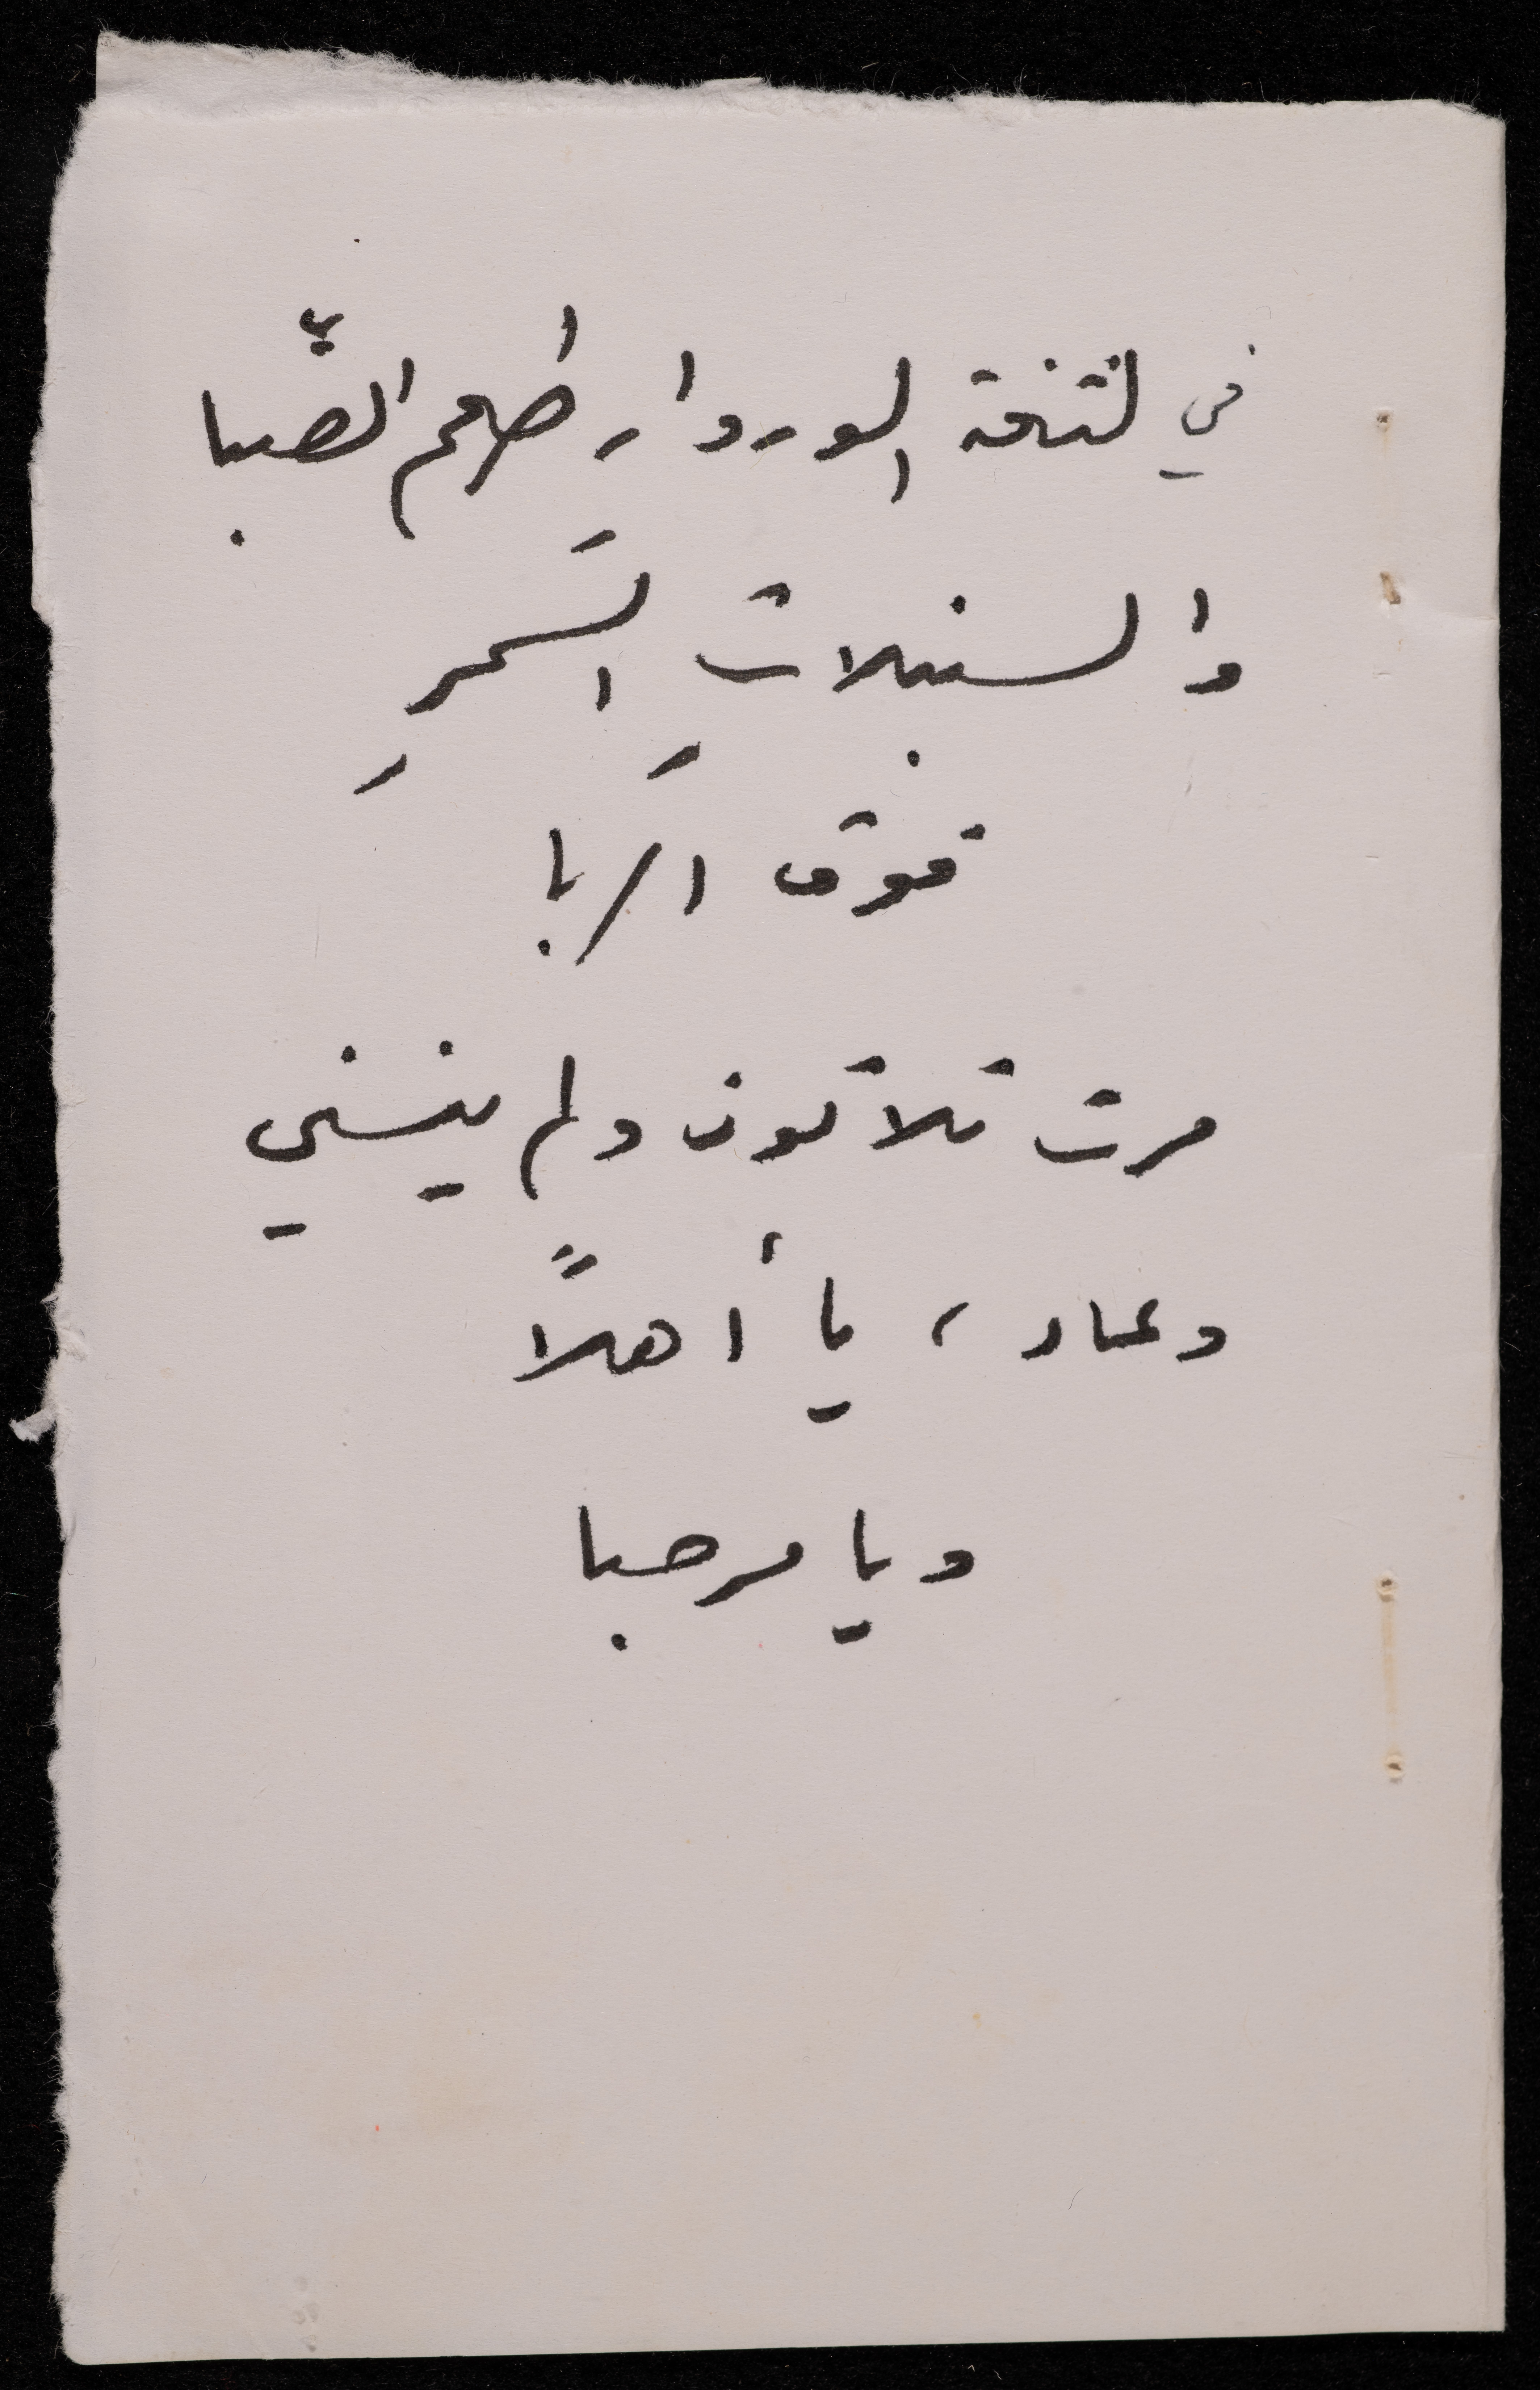 في لثغة الوروار طعم الصِّبا
والسنبلاتِ السَمرِ
فوق الربا
مرت ثلاثون ولم ينسني
وعاد، يا أهلاً
ويا مرحبا